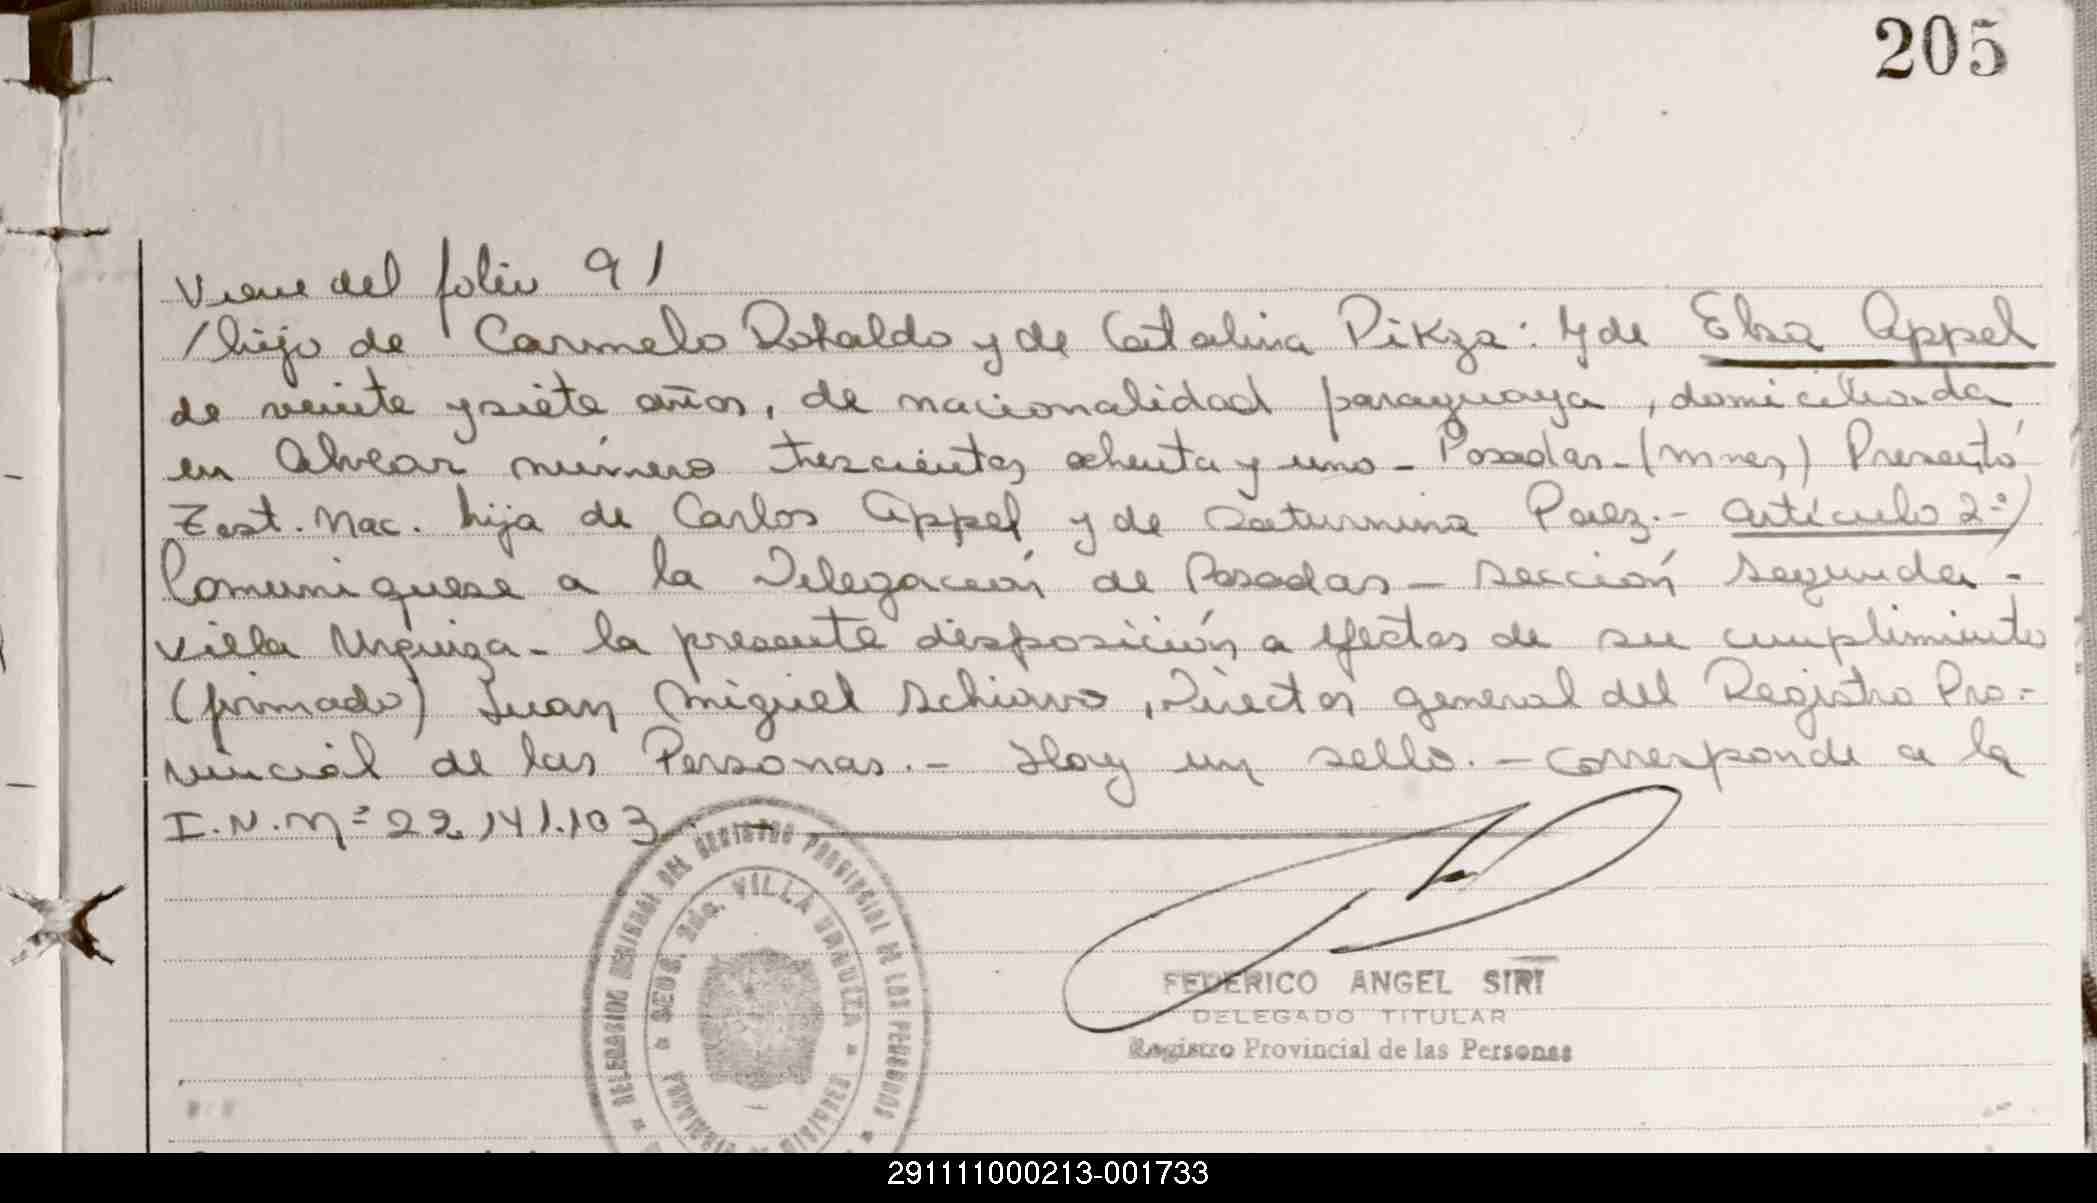 205
Viene del folio 91
/hijo de Carmelo Rotaldo y de Catalina Pikza: y de Elsa Appel
de veinte y siete años, de nacionalidad paraguaya, domiciliada
en Alvear número trescientos ochenta y uno - Posadas - (Mnes) Presentó
Test. Nac. hija de Carlos Appel y de Saturnina Paez.- Artículo 2º)
Comuniquese a la Delegación de Posadas - sección segunda -
Villa Urquiza - la presente disposición a efectos de su cumplimiento
(firmado) Juan Miguel Schiavo, Director general del Registro Pro-
vincial de las Personas.- Hay un sello.- Corresponde a la
I.N. Nº 22.141.103
DELEGACION REGIONAL DEL REGISTRO PROVINCIAL DE LAS PERSONAS
SECC. 2da. VILLA URQUIZA
FEDERICO ANGEL SIRI
DELEGADO TITULAR
Registro Provincial de las Personas
291111000213-001733